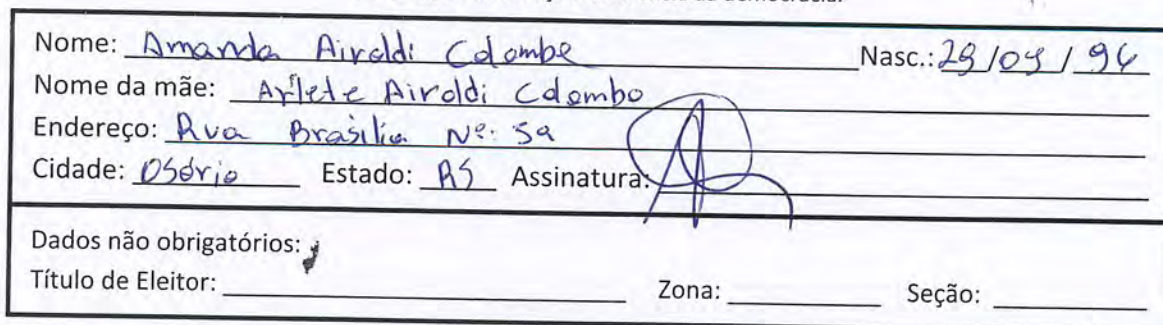 democracia.
Nome: Amanda Airoldi Colombo Nasc.: 29/09/94
Nome da mãe: Arlete Airoldi Colombo
Endereço: Rua Brasilia Nº: 59
Cidade: Osório Estado: RS Assinatura:
Dados não obrigatórios:
Título de Eleitor: Zona: Seção: